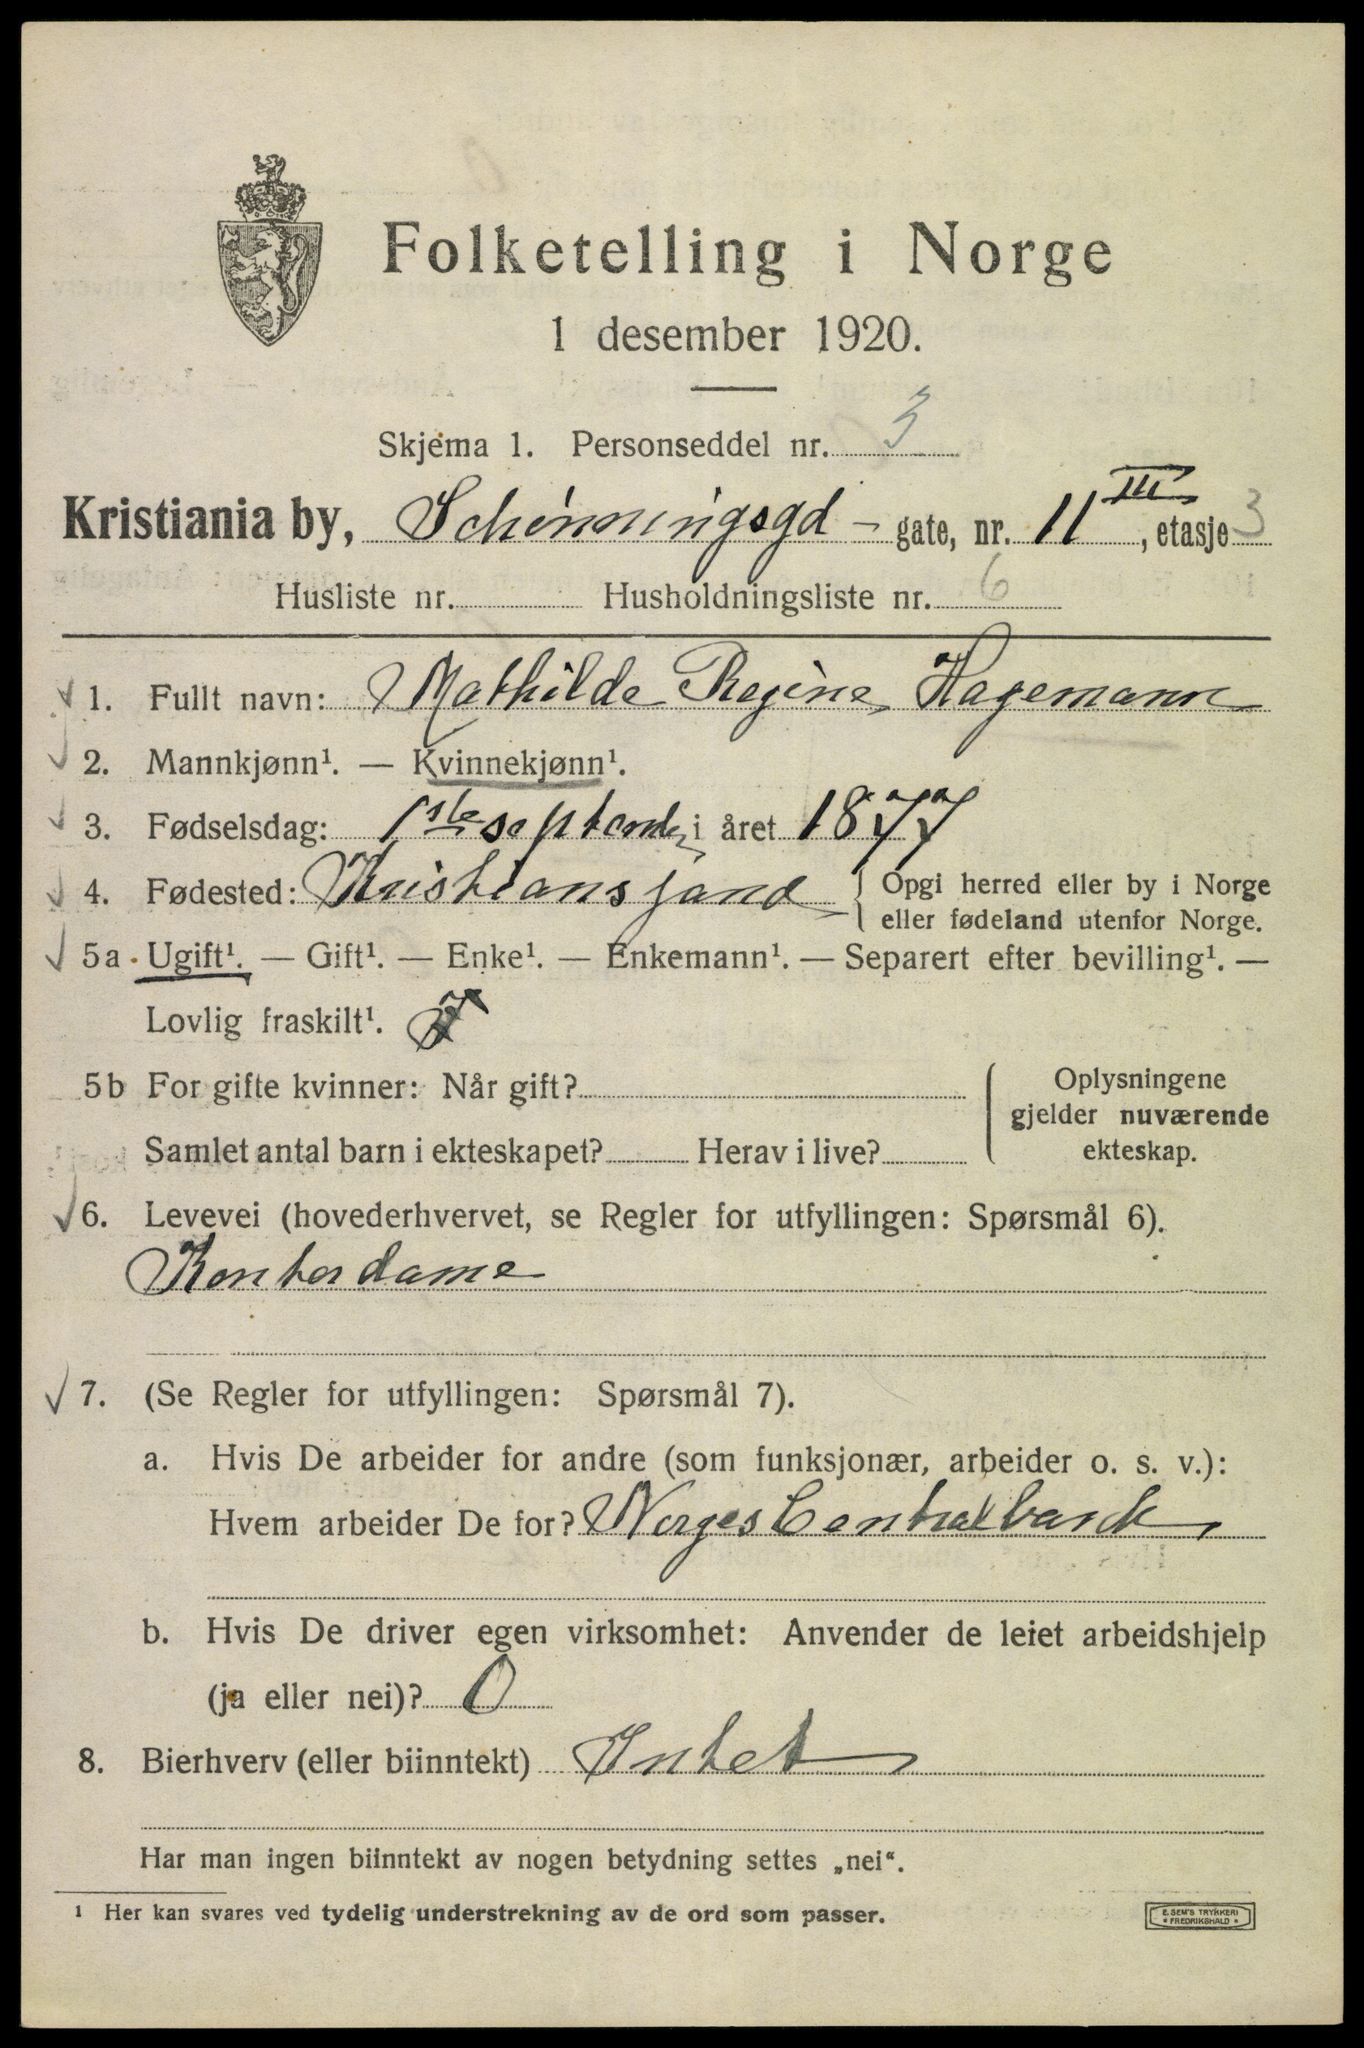 Folketelling i Norge
1 desember 1920.
Skjema 1. Personseddel nr. 3
Kristiania by, Schønningsgd - gate, nr. 11 III, etasje 3
Husliste nr. Husholdningsliste nr. 6
1. Fullt navn: Mathilde Regine Hagemann
2. Mannkjønn¹. — Kvinnekjønn¹.
3. Fødselsdag: 1ste septemb i året 1877
4. Fødested: Kristiansand { Opgi herred eller by i Norge
eller fødeland utenfor Norge.
5a Ugift¹. — Gift¹. — Enke¹. — Enkemann¹. — Separert efter bevilling¹. —
Lovlig fraskilt¹.
5b For gifte kvinner: Når gift? { Oplysningene
gjelder nuværende
Samlet antal barn i ekteskapet? Herav i live? ekteskap.
6. Levevei (hovederhvervet, se Regler for utfyllingen: Spørsmål 6).
Kontordame
7. (Se Regler for utfyllingen: Spørsmål 7).
a. Hvis De arbeider for andre (som funksjonær, arbeider o. s. v.):
Hvem arbeider De for? Norges Centralbank
b. Hvis De driver egen virksomhet: Anvender de leiet arbeidshjelp
(ja eller nei)? 0
8. Bierhverv (eller biinntekt) Intet
Har man ingen biinntekt av nogen betydning settes „nei“.
¹ Her kan svares ved tydelig understrekning av de ord som passer.
E. SEM'S TRYKKERI
* FREDRIKSHALD *